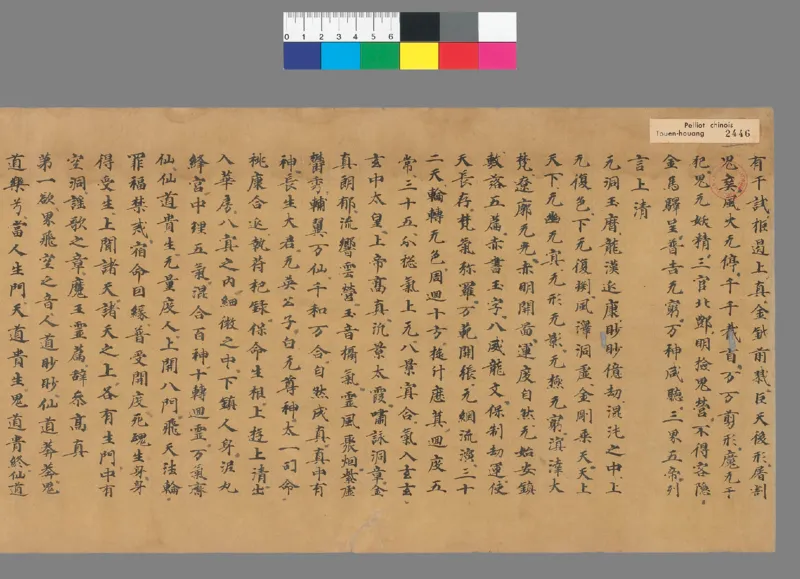 Pelliot chinois
Touen-houang 2446
有干試拒遏上真金鉞前戮巨天後形屠割
鬼爽風火无停千千截首万万剪形魔无干
犯鬼无妖精三官北酆明撿鬼營不得容隱
金馬驛呈普告无窮万神咸聽三界五帝列
言上清
元洞玉曆龍漢延康眇眇億劫混沌之中上
无復色下无復淵風澤洞虛金剛乘天天上
天下无幽无冥无形无影无極无窮溟涬大
梵遼廓无光赤明開啚運度自然元始安鎮
敷落五篇赤書玉字八威龍文保制劫運使
天長存梵氣弥羅万範開張元綱流演三十
二天輪轉无色周迴十方旋斗歷箕迴度五
常三十五分惣氣上元八景冥合氣入玄玄
玄中太皇上帝高真汎景太霞嘯詠洞章金
真朗郁流響雲營玉音攝氣靈風聚烟紫虛
欝秀輔翼万仙千和万合自然成真真中有
神長生大君无英公子白元尊神太一司命
桃康合延執符把籙保命生根上遊上清出
入華房八冥之內細微之中下鎮人身泥丸
絳宮中理五氣混合百神十轉迴靈万氣齊
仙仙道貴生无量度人上開八門飛天法輪
罪福禁戒宿命因緣普受開度死魂生身身
得受生上聞諸天諸天之上各有生門中有
空洞謠歌之章魔王靈篇辭參高真
第一欲界飛空之音人道眇眇仙道莽莽鬼
道樂兮當人生門天道貴生鬼道貴終仙道